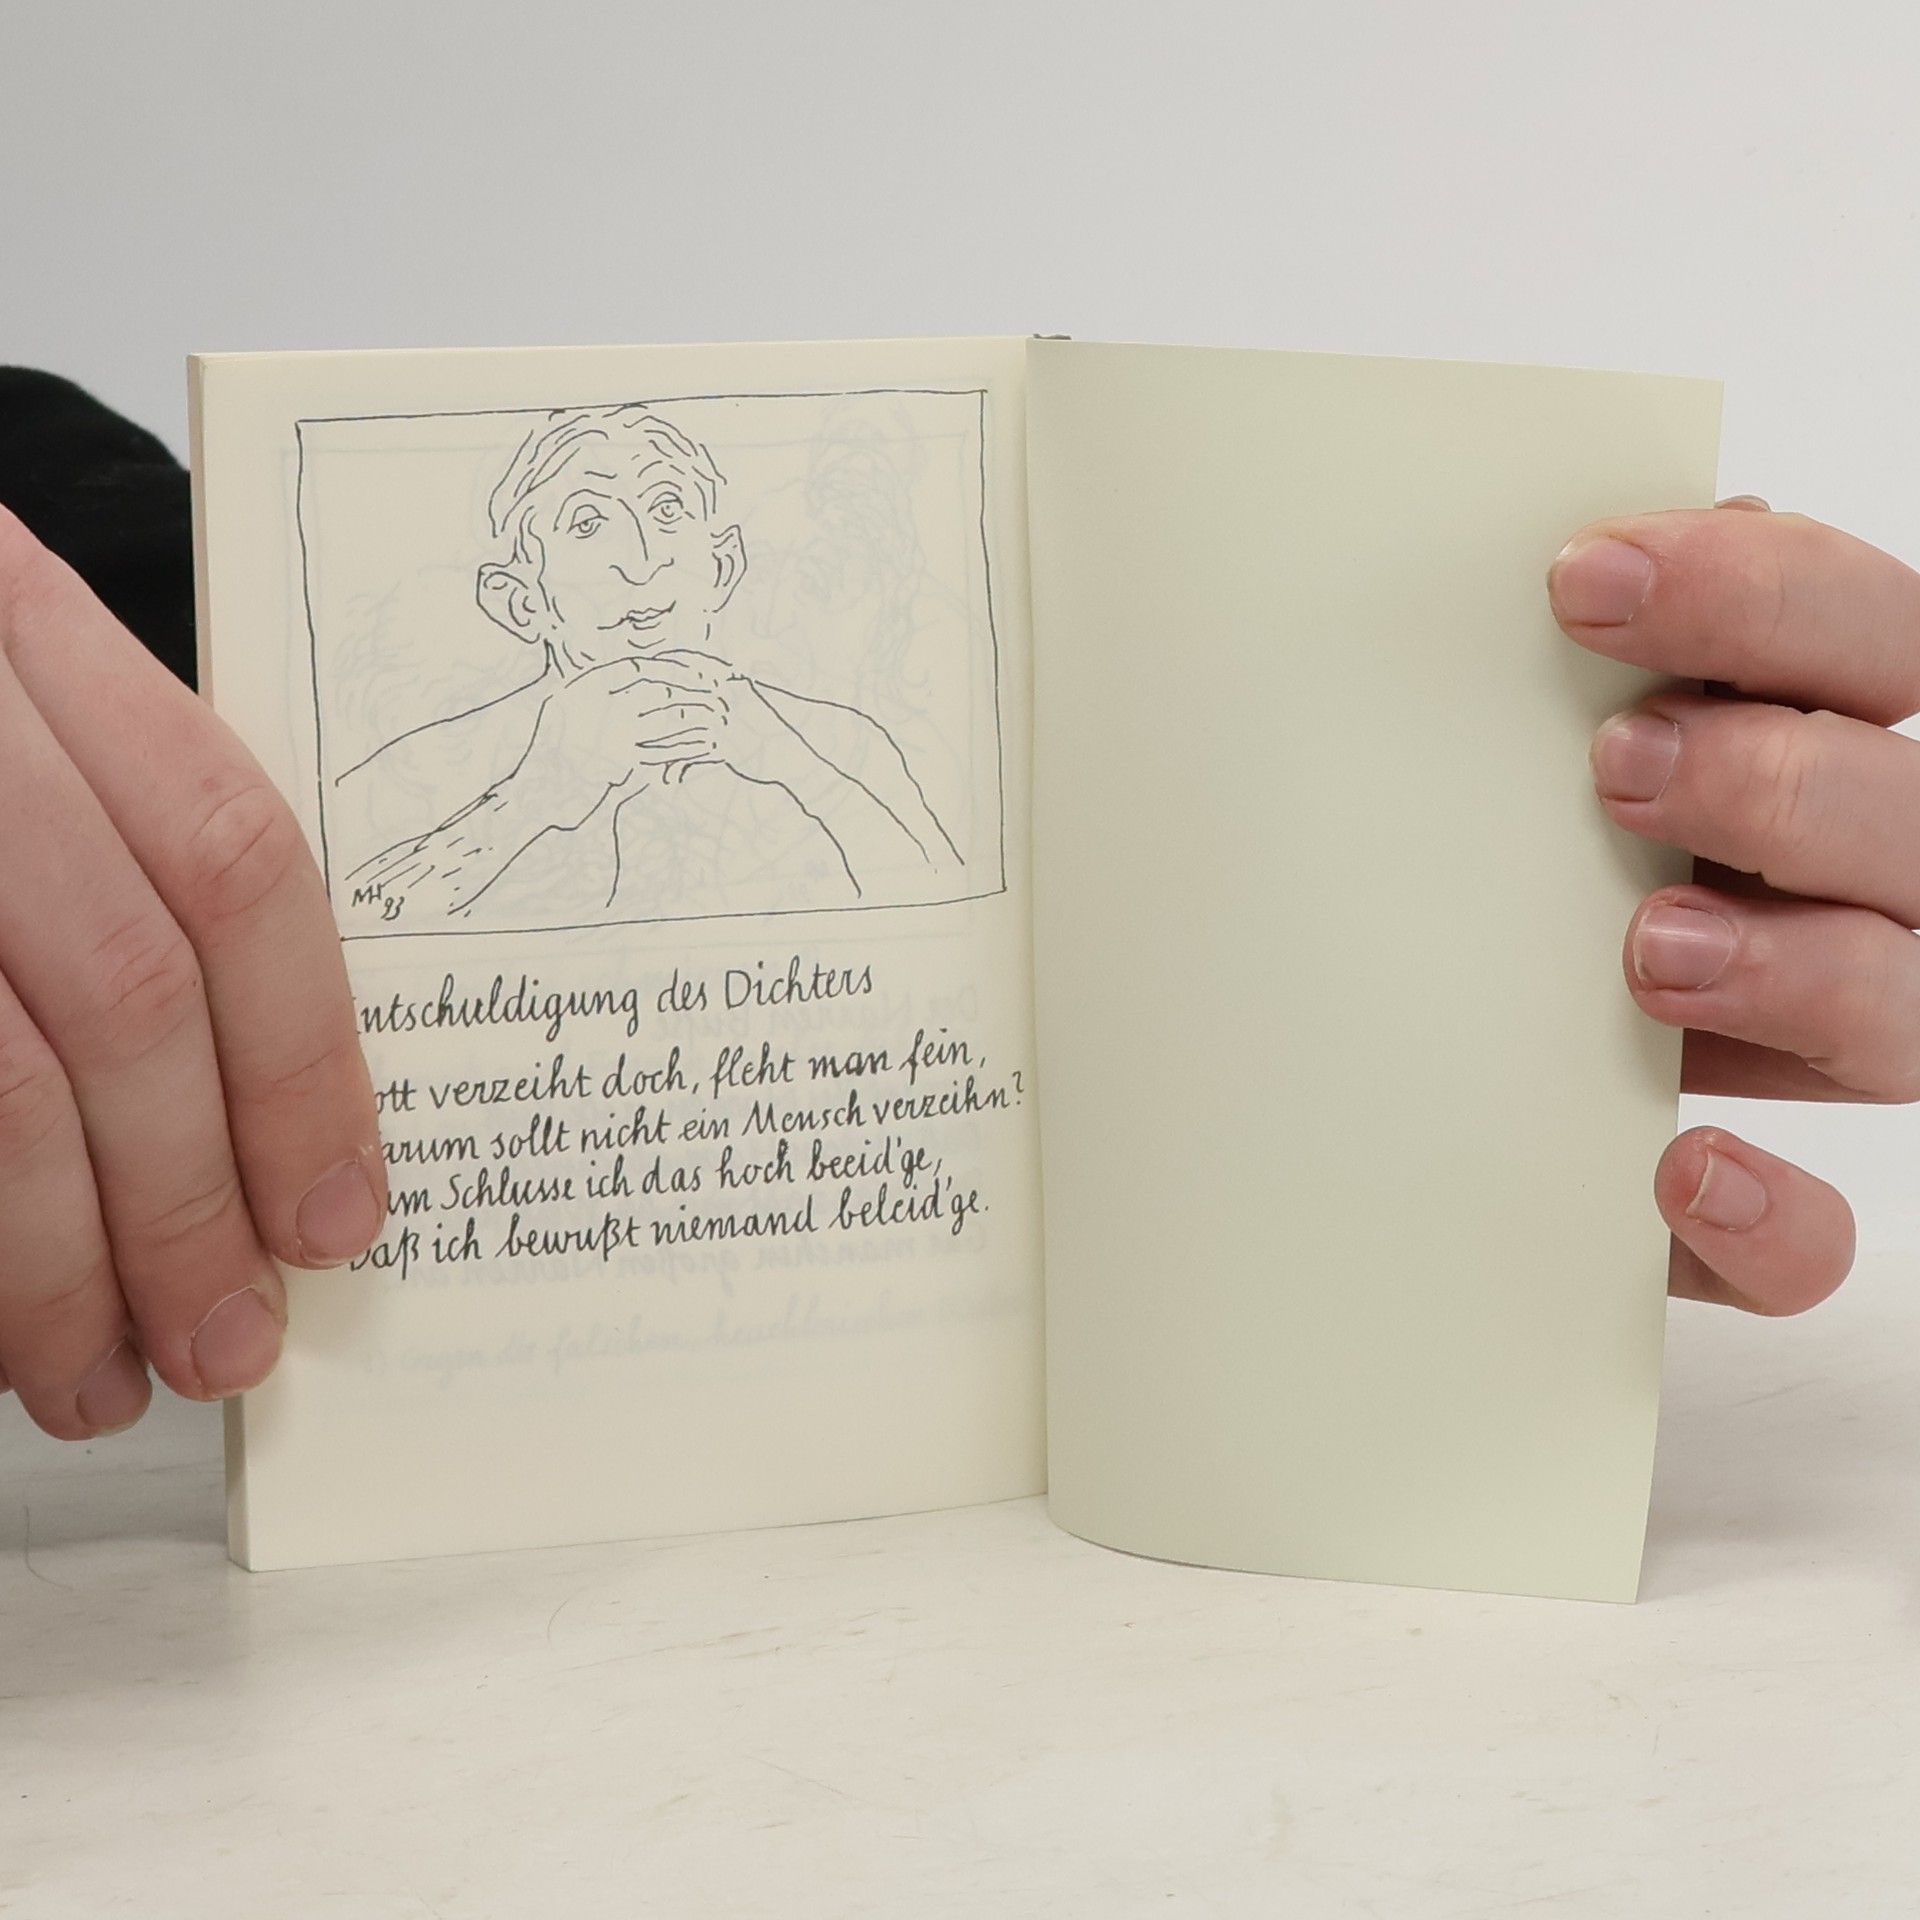 MH 93
Entschuldigung des Dichters
Gott verzeiht doch, fleht man fein,
Warum sollt nicht ein Mensch verzeihn?
Zum Schlusse ich das hoch beeid'ge,
Daß ich bewußt niemand beleid'ge.